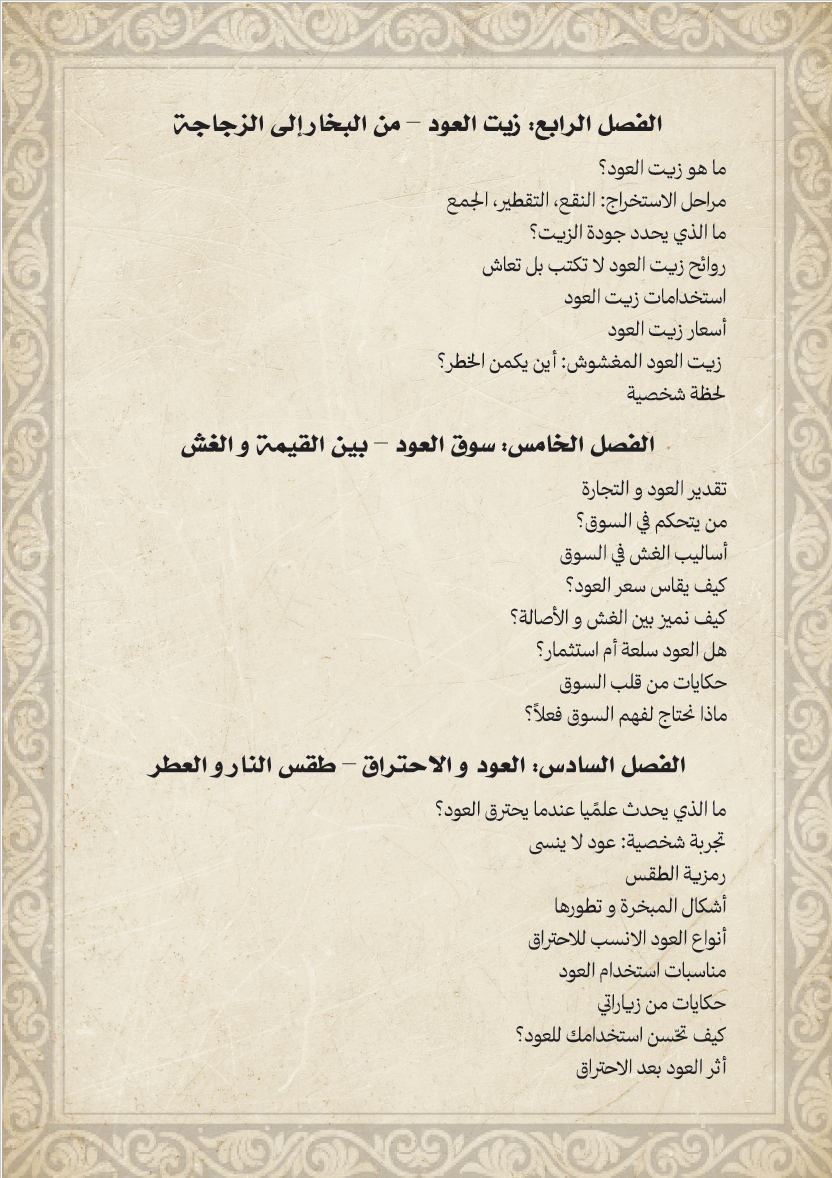 الفصل الرابع: زيت العود – من البخار إلى الزجاجة
ما هو زيت العود؟
مراحل الاستخراج: النقع، التقطير، الجمع
ما الذي يحدد جودة الزيت؟
روائح زيت العود لا تكتب بل تعاش
استخدامات زيت العود
أسعار زيت العود
زيت العود المغشوش: أين يكمن الخطر؟
لحظة شخصية
الفصل الخامس: سوق العود – بين القيمة و الغش
تقدير العود و التجارة
من يتحكم في السوق؟
أساليب الغش في السوق
كيف يقاس سعر العود؟
كيف نميز بين الغش و الأصالة؟
هل العود سلعة أم استثمار؟
حكايات من قلب السوق
ماذا نحتاج لفهم السوق فعلاً؟
الفصل السادس: العود و الاحتراق – طقس النار و العطر
ما الذي يحدث علمًيا عندما يحترق العود؟
تجربة شخصية: عود لا ينسى
رمزية الطقس
أشكال المبخرة و تطورها
أنواع العود الانسب للاحتراق
مناسبات استخدام العود
حكايات من زياراتي
كيف تحّسن استخدامك للعود؟
أثر العود بعد الاحتراق